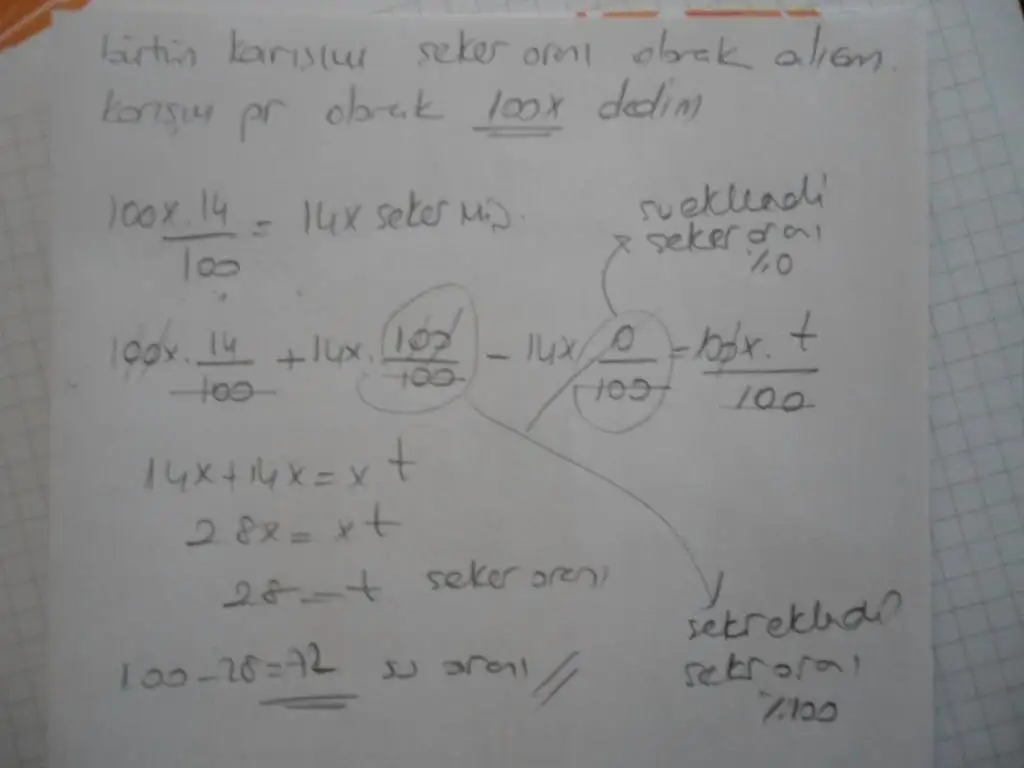 bütün karışım şeker oranı olarak alıcam.
karışım pr olarak 100x dedim
100x.14/100 = 14x şeker miş.
su ekledi
şeker oranı
%0
100x.14/100 + 14x.100/100 - 14x 0/100 = 100x.t/100
14x+14x=xt
28x=xt
28=t şeker oranı
şekr ekledi
şekr oranı
%100
100-28=72 su oranı //